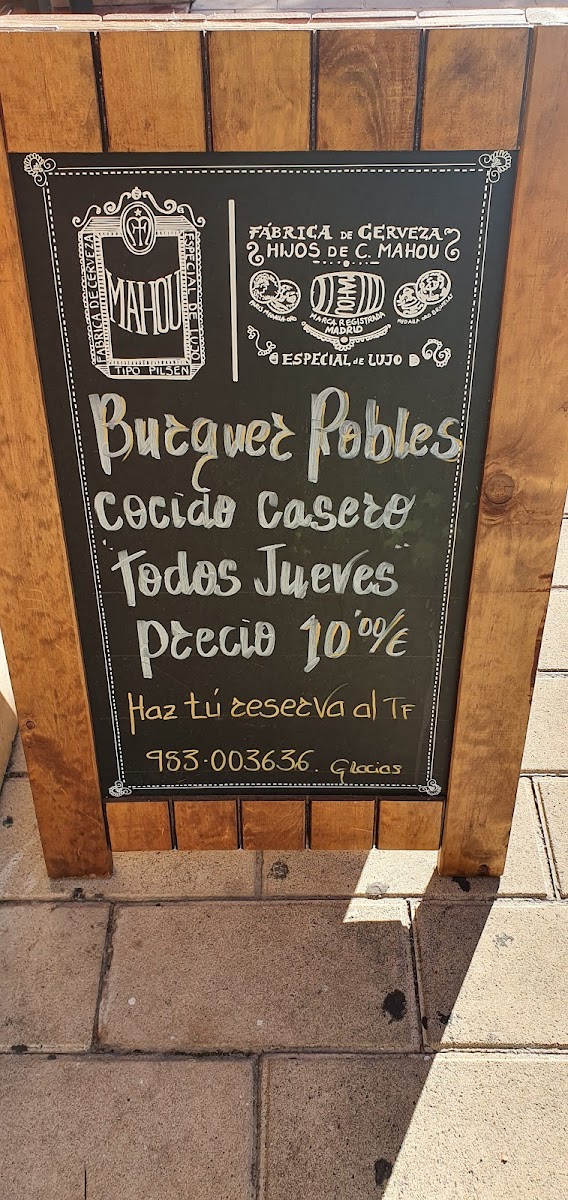 FÁBRICA DE CERVEZA
MAHOU
ESPECIAL DE LUJO
TIPO PILSEN
FÁBRICA DE CERVEZA
HIJOS DE C. MAHOU
MARCA REGISTRADA
MADRID
ESPECIAL DE LUJO
Burguer Pobles
cocido casero
"Todos Jueves"
precio 10'00/€
Haz tú reserva al TF
983·003636. Gracias